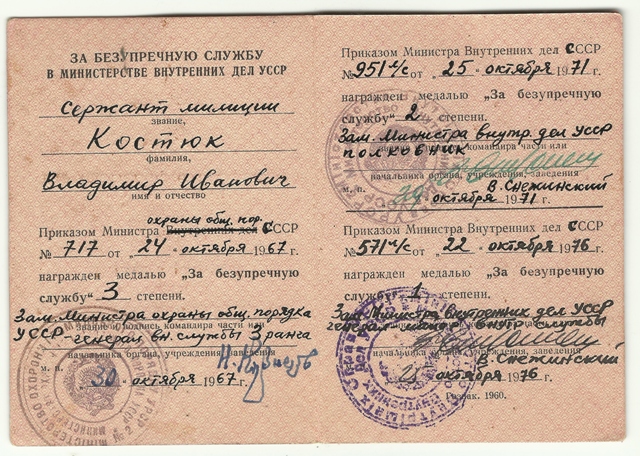 ЗА БЕЗУПРЕЧНУЮ СЛУЖБУ
В МИНИСТЕРСТВЕ ВНУТРЕННИХ ДЕЛ УССР
Сержант милиции
звание,
Костюк
фамилия,
Владимир Иванович
имя и отчество
охраны общ. пор.
Приказом Министра Внутренних дел СССР
№ 717 от "24" октября 1967 г.
награжден медалью „За безупречную
службу" 3 степени.
Зам. Министра охраны общ. порядка
УССР - генерал вн. службы 3 ранга
звание и подпись командира части или
начальника органа, учреждения, заведения
м. п.
"30" октября 1967 г.
Приказом Министра Внутренних дел СССР
№ 951 л/с от "25" октября 1971 г.
награжден медалью „За безупречную
службу" 2 степени.
Зам. Министра внутр. дел УССР
полковник
командира части или
начальника органа, учреждения, заведения
м. п.
В. Снежинский
октября 1971 г.
Приказом Министра Внутренних дел СССР
№ 571 л/с от "22" октября 1976 г.
награжден медалью „За безупречную
службу" 1 степени.
Зам. Министра внутренних дел УССР
генерал-майор внутр. службы
начальника органа, учреждения, заведения
В. Снежинский
октября 1976 г.
Гознак. 1960.